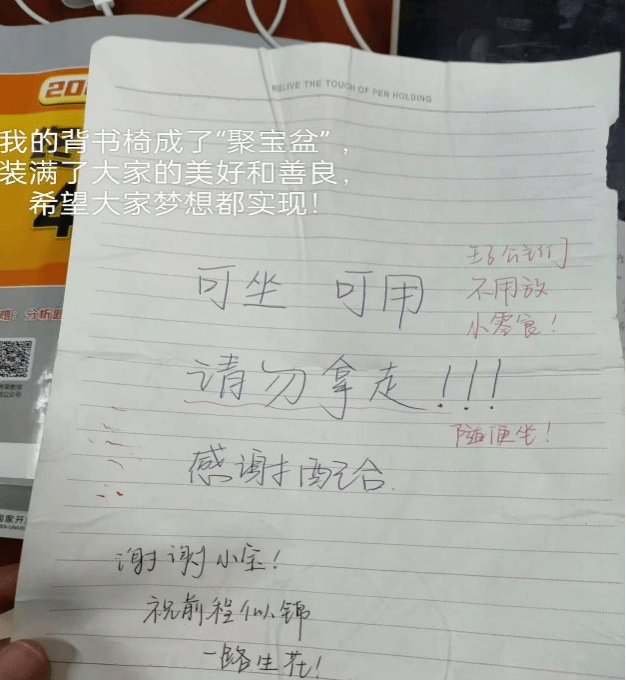 RELIVE THE TOUCH OF PEN HOLDING
我的背书椅成了“聚宝盆”，
装满了大家的美好和善良，
希望大家梦想都实现！
可坐 可用
请勿拿走！！！
感谢配合.
不用放
小零食！
随便坐！
谢谢小宝！
祝前程似锦
一路生花！